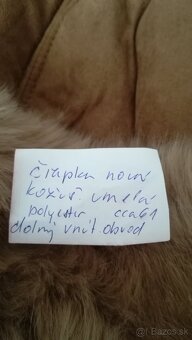 čiapka nová
kožuš. umelá
polyester cca 61
dolný vnút. obvod
bazos.sk